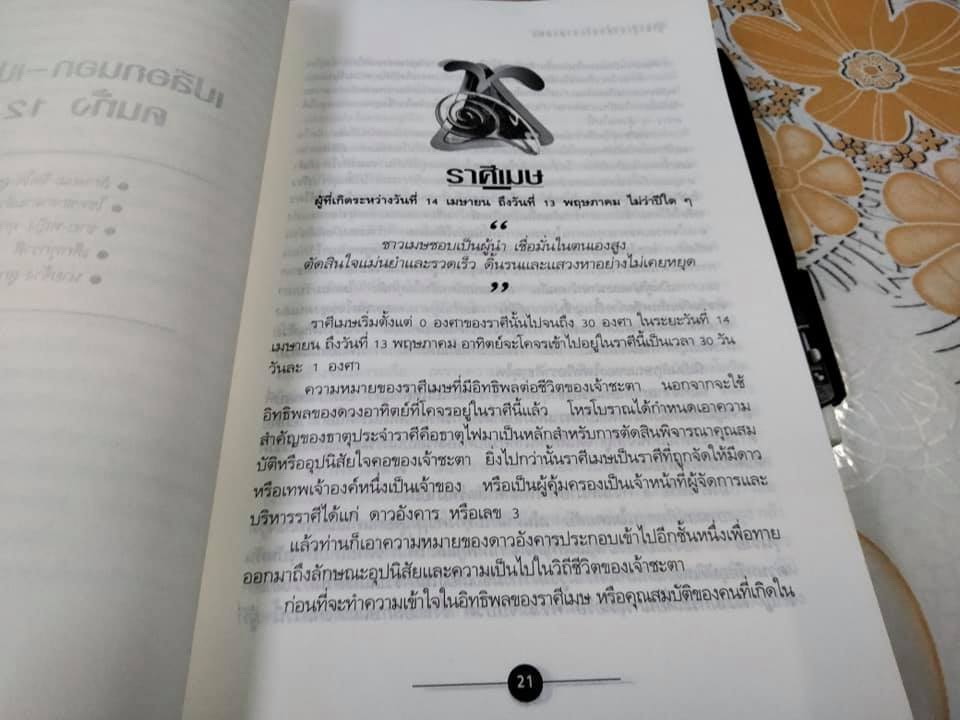 ราศีเมษ
ผู้ที่เกิดระหว่างวันที่ 14 เมษายน ถึงวันที่ 13 พฤษภาคม ไม่ว่าปีใด ๆ
“
ชาวเมษชอบเป็นผู้นำ เชื่อมั่นในตนเองสูง
ตัดสินใจแม่นยำและรวดเร็ว ดิ้นรนและแสวงหาอย่างไม่เคยหยุด
”
ราศีเมษเริ่มตั้งแต่ 0 องศาของราศีนั้นไปจนถึง 30 องศา ในระยะวันที่ 14
เมษายน ถึงวันที่ 13 พฤษภาคม อาทิตย์จะโคจรเข้าไปอยู่ในราศีนี้เป็นเวลา 30 วัน
วันละ 1 องศา
ความหมายของราศีเมษที่มีอิทธิพลต่อชีวิตของเจ้าชะตา นอกจากจะใช้
อิทธิพลของดวงอาทิตย์ที่โคจรอยู่ในราศีนี้แล้ว โหรโบราณได้กำหนดเอาความ
สำคัญของธาตุประจำราศีคือธาตุไฟมาเป็นหลักสำหรับการตัดสินพิจารณาคุณสม
บัติหรืออุปนิสัยใจคอของเจ้าชะตา ยิ่งไปกว่านั้นราศีเมษเป็นราศีที่ถูกจัดให้มีดาว
หรือเทพเจ้าองค์หนึ่งเป็นเจ้าของ หรือเป็นผู้คุ้มครองเป็นเจ้าหน้าที่ผู้จัดการและ
บริหารราศีได้แก่ ดาวอังคาร หรือเลข 3
แล้วท่านก็เอาความหมายของดาวอังคารประกอบเข้าไปอีกชั้นหนึ่งเพื่อทาย
ออกมาถึงลักษณะอุปนิสัยและความเป็นไปในวิถีชีวิตของเจ้าชะตา
ก่อนที่จะทำความเข้าใจในอิทธิพลของราศีเมษ หรือคุณสมบัติของคนที่เกิดใน
21